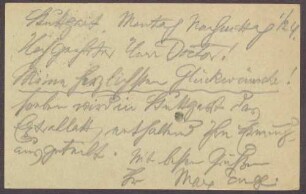 Stuttgart, Montag Nachmittag
Hochgeehrter Herr Doctor!
Meine herzlichsten Glückwünsche!
soeben wird in Stuttgart das
Extrablatt, enthaltend Ihre
ausgeteilt. Mit besten Grüßen
Ihr Max